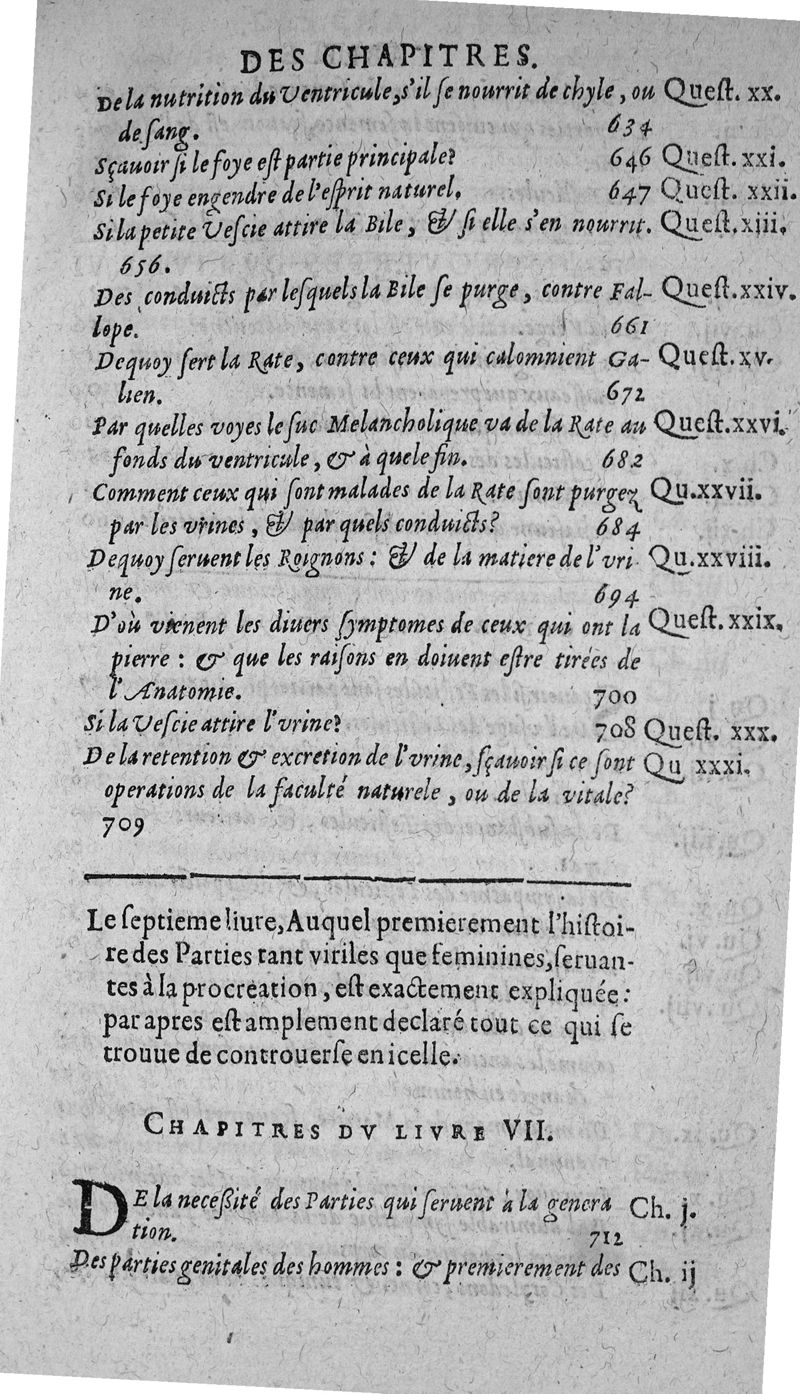 DES CHAPITRES.
De la nutrition du Ventricule, s'il ſe nourrit de chyle, ou Queſt. xx.
de ſang. 634
Sçauoir ſi le foye eſt partie principale? 646 Queſt. xxi.
Si le foye engendre de l'eſprit naturel. 647 Queſt. xxii.
Si la petite Veſcie attire la Bile, & ſi elle s'en nourrit. Queſt. xiii.
656.
Des conduicts par leſquels la Bile ſe purge, contre Fal- Queſt. xxiv.
lope. 661
Dequoy ſert la Rate, contre ceux qui calomnient Ga- Queſt. xv.
lien. 672
Par quelles voyes le ſuc Melancholique va de la Rate au Queſt. xxvi.
fonds du ventricule, & à quele fin. 682
Comment ceux qui ſont malades de la Rate ſont purgez Qu. xxvii.
par les vrines, & par quels conduicts? 684
Dequoy ſeruent les Roignons: & de la matiere de l'vri Qu. xxviii.
ne. 694
D'où vienent les diuers ſymptomes de ceux qui ont la Queſt. xxix.
pierre: & que les raiſons en doiuent eſtre tirées de
l'Anatomie. 700
Si la Veſcie attire l'vrine? 708 Queſt. xxx.
De la retention & excretion de l'vrine, ſçauoir ſi ce ſont Qu xxxi.
operations de la faculté naturele, ou de la vitale?
709
Le ſeptieme liure, Auquel premierement l'hiſtoi-
re des Parties tant viriles que feminines, ſeruan-
tes à la procreation, eſt exactement expliquée:
par apres eſt amplement declaré tout ce qui ſe
trouue de controuerſe en icelle.
CHAPITRES DV LIVRE VII.
DE la neceßité des Parties qui ſeruent à la genera Ch. j.
tion. 712
Des parties genitales des hommes: & premierement des Ch. ij